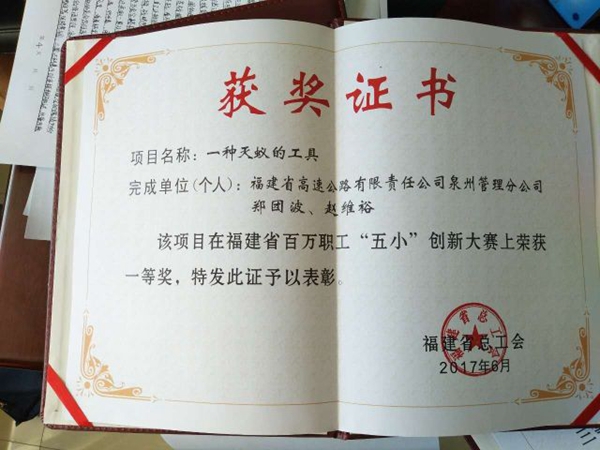 获奖证书
项目名称：一种灭蚁的工具
完成单位(个人)：福建省高速公路有限责任公司泉州管理分公司
郑团波、赵维裕
该项目在福建省百万职工“五小”创新大赛上荣获
一等奖，特发此证予以表彰。
福建省总工会
福建省总工会
2017年6月